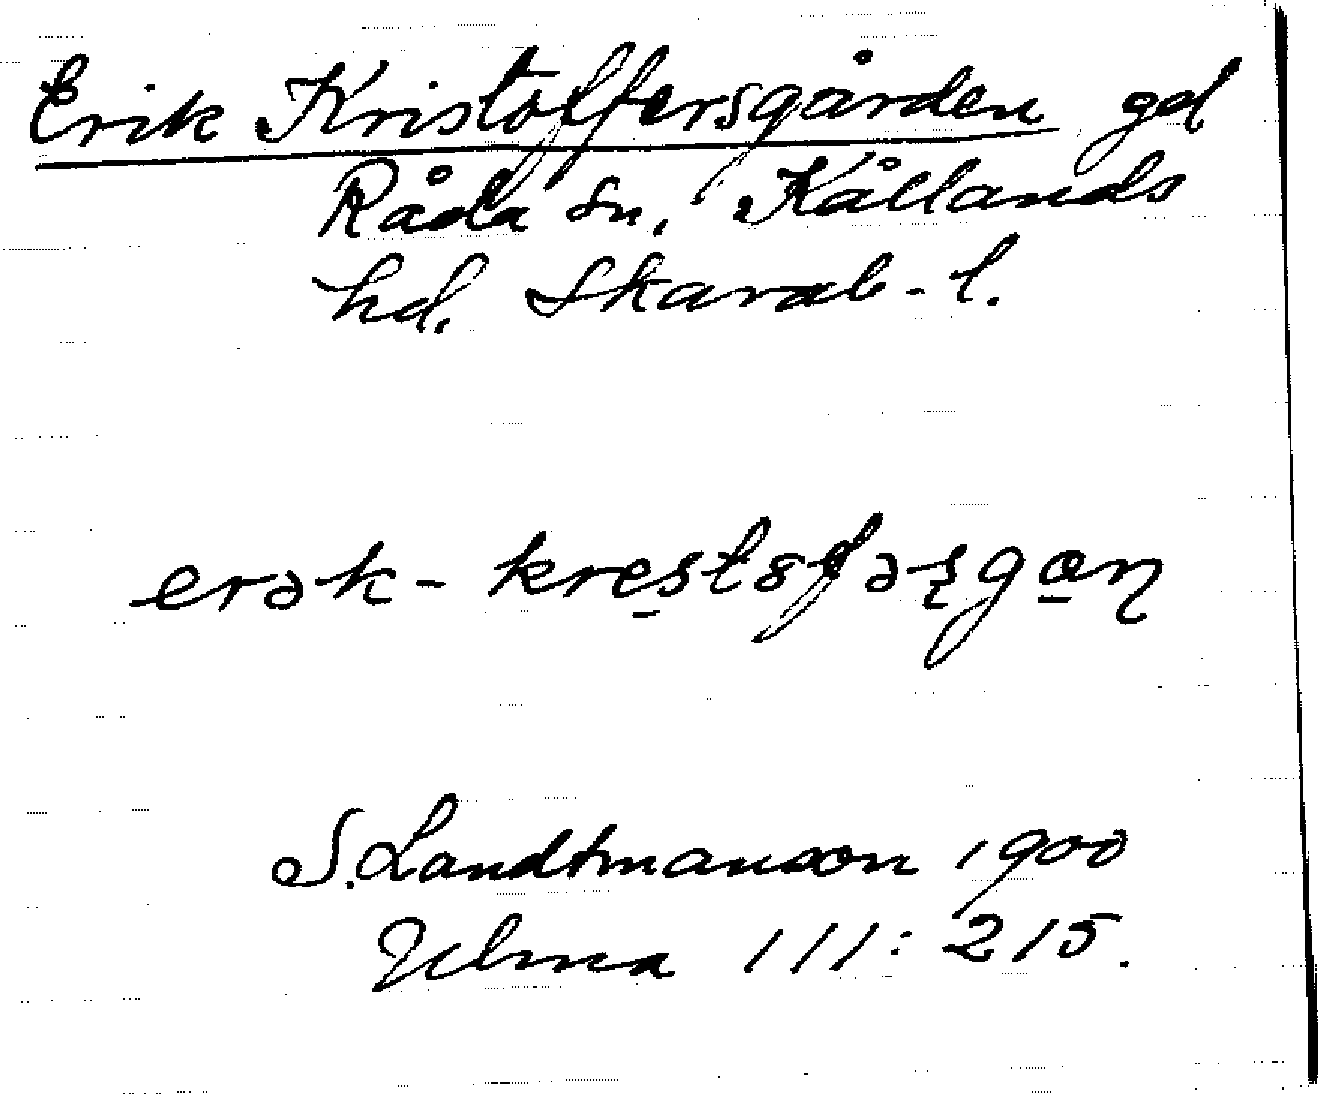 Erik Kristoffersgården gd
Råda sn, Kållands
hd. Skarab-l.
erək-kre̱stsfəʂga̱ɳ
S. Landtmanson 1900
Ulma 111:215.